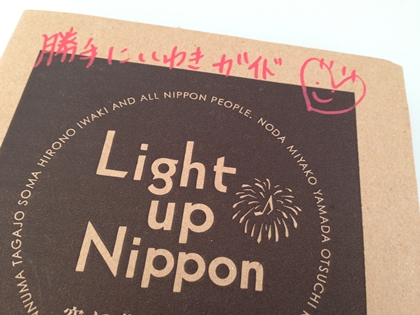 勝手にいわきガイド
ANUMA TAGAJO SOMA HIRONO IWAKI AND ALL NIPPON PEOPLE, NODA MIYAKO YAMADA OTSUCHI
Light
up
Nippon